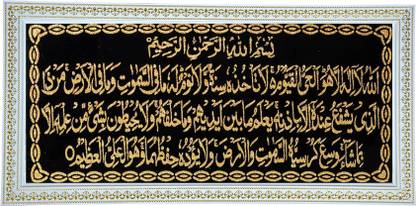 بِسْمِ اللهِ الرَّحْمٰنِ الرَّحِيْمِ
اَللهُ لَا اِلٰهَ اِلَّا هُوَ الْحَيُّ الْقَيُّوْمُ لَا تَاْخُذُهٗ سِنَةٌ وَّلَا نَوْمٌ لَهٗ مَا فِي السَّمٰوٰتِ وَمَا فِي الْاَرْضِ مَنْ ذَا
الَّذِيْ يَشْفَعُ عِنْدَهٗ اِلَّا بِاِذْنِهٖ يَعْلَمُ مَا بَيْنَ اَيْدِيْهِمْ وَمَا خَلْفَهُمْ وَلَا يُحِيْطُوْنَ بِشَيْءٍ مِّنْ عِلْمِهٖ اِلَّا
بِمَا شَاءَ وَسِعَ كُرْسِيُّهُ السَّمٰوٰتِ وَالْاَرْضَ وَلَا يَئُوْدُهٗ حِفْظُهُمَا وَهُوَ الْعَلِيُّ الْعَظِيْمُ